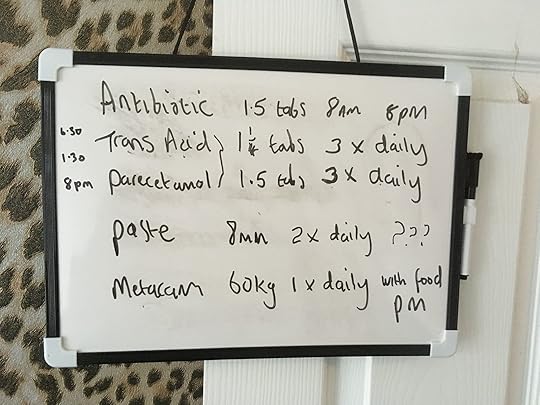 Antibiotic 1.5 tabs 8am 8pm
6.30 Trans Acid } 1 tabs 3 x daily
1.30
8pm paracetamol 1.5 tabs 3 x daily
paste 8mm 2x daily ???
Metacam 60kg 1 x daily with food
pm